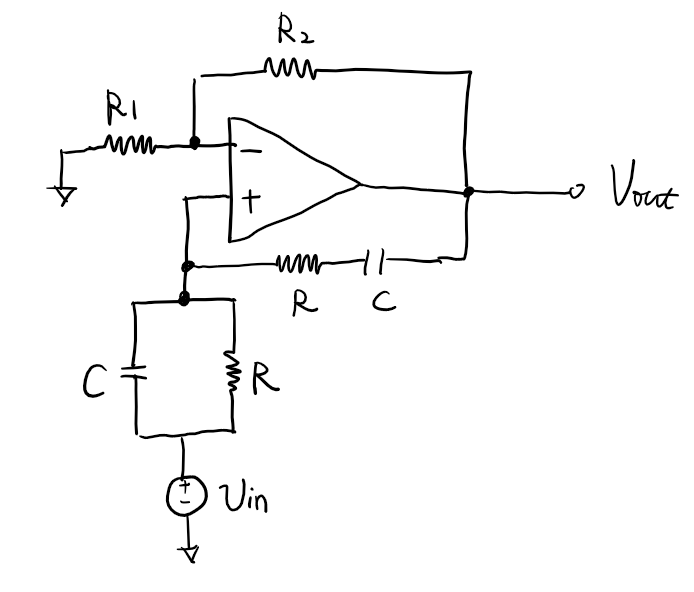 R2
R1
−
+
Vout
R C
C R
+
−
Vin